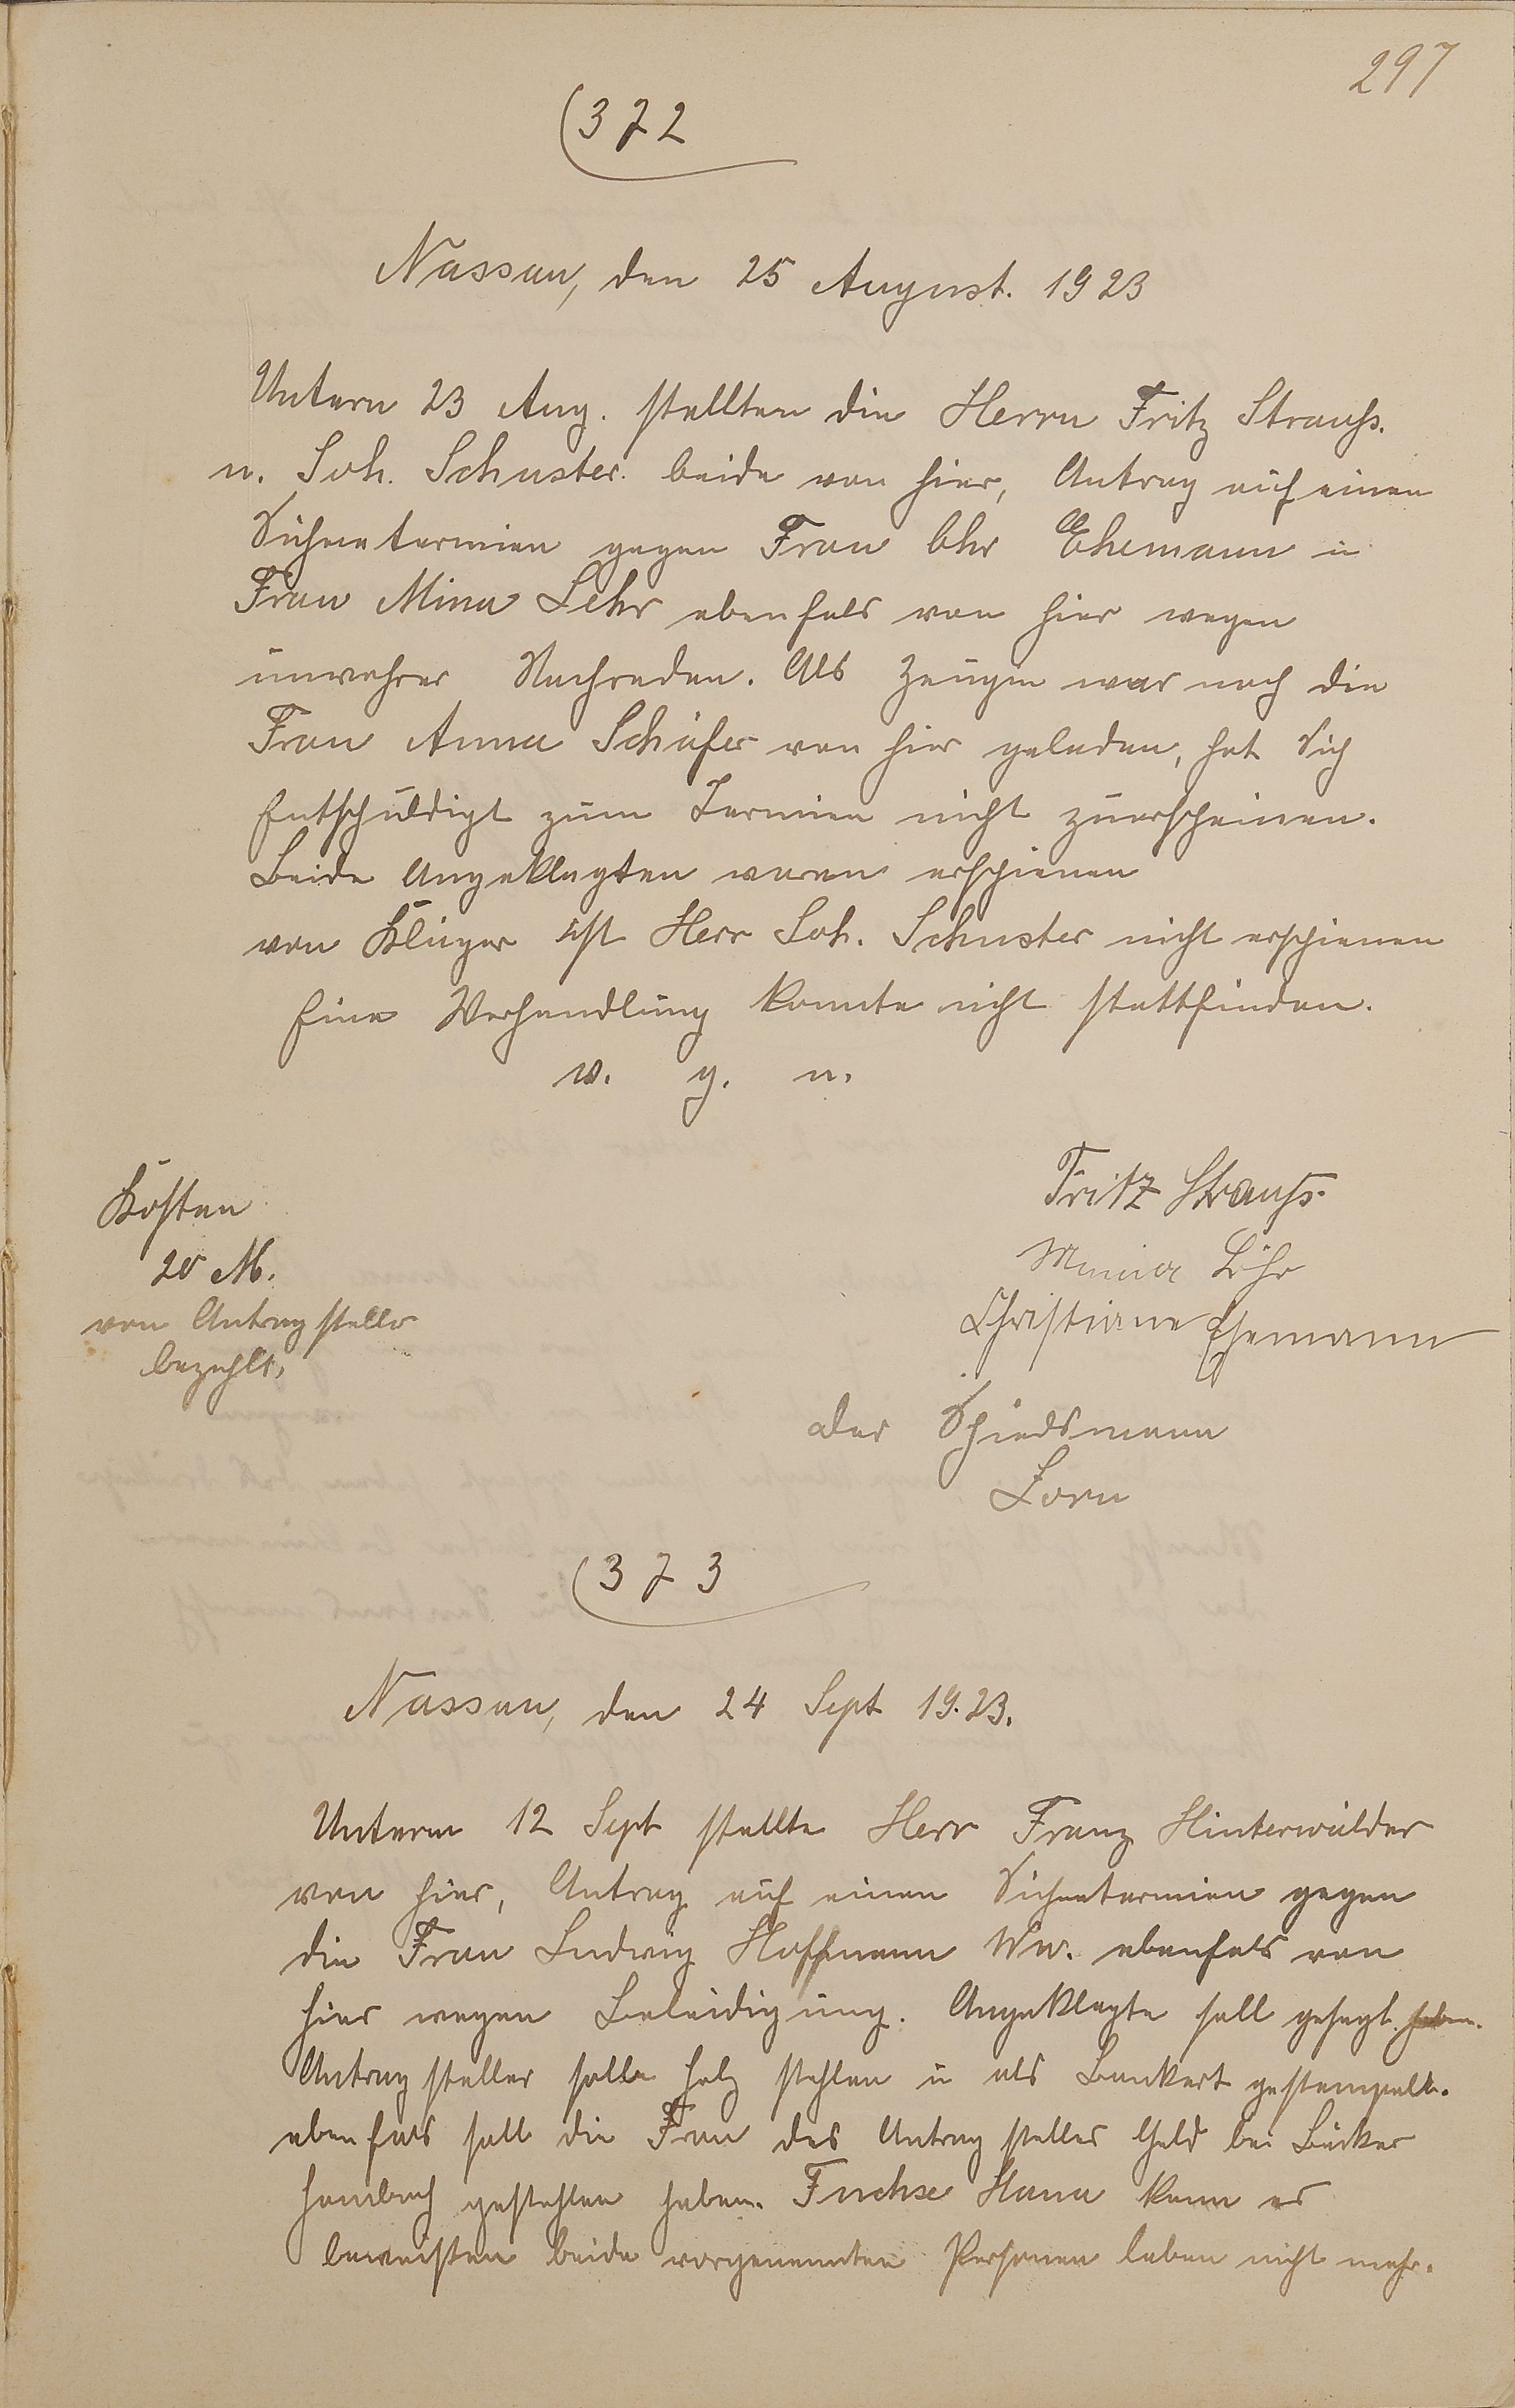 297
(372
Nassau, den 25 August. 1923
Unterm 23 Aug. stellten die Herrn Fritz Strauß.
u. Joh. Schuster. beide von hier, Antrag auf einen
Sühnetermien gegen Frau Chr Ehemann u
Frau Mina Lehr ebenfals von hier wegen
unwahrer Nachreden. Als Zeugin war noch die
Frau Anna Schäfer von hier geladen, hat Sich
Entschuldigt zum Termien nicht zuerscheinen.
Beide Angeklagten waren erschienen
von Kläger ist Herr Joh. Schuster nicht erschienen
Eine Verhandlung konnte nicht stattfinden.
v. g. u.
Kosten
20 M.
von Antragsteller
bezahlt,
Fritz Strauß.
Minna Löhr
Christiane Ehemann
der Schiedsmann
Lorn
(373
Nassau, den 24 Sept 19.23.
Unterm 12 Sept stellte Herr Franz Hinterwälder
von hier, Antrag auf einen Sühnetermien gegen
die Frau Ludwig Hoffmann Ww. ebenfals von
hier wegen Beleidigung. Angeklagte soll gesagt haben.
Antragsteller solle Holz stehlen u als Bankert gestempelt.
ebenfals soll die Frau des Antragsteller Geld bei Bäcker
Hombach gestohlen haben. Fuchse Hana kann es
beweisten beide vorgenannten Personen leben nicht mehr.